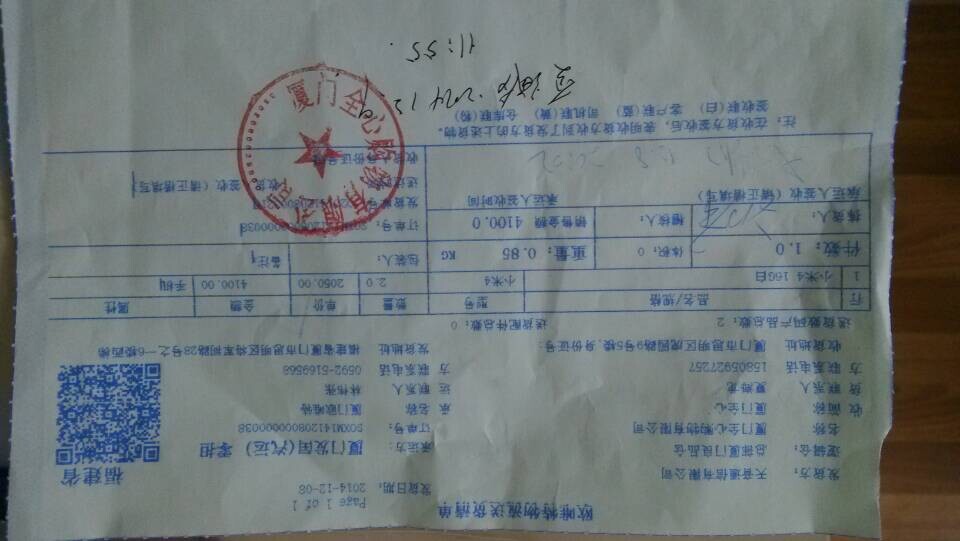 欧唯特物流送货清单
Page 1 of 1
发货方: 天音通信有限公司 发货日期: 2014-12-08 福建省
逻辑仓: 总部厦门良品仓 承运方: 厦门发国(汽运) 零担
名称 厦门全心购物有限公司 订单号: SOXM1412080000038
收 面称 厦门全心 承 名称 厦门欧唯特
货 联系人 运 联系人 林伟张
方 联系电话 15805927257 方 联系电话 0592-5169568
收货地址 厦门市思明区虎园路9号5楼,身份证号: 发货地址 福建省厦门市思明区将军祠路28号之一6楼西梯
送货数码产品总数: 2 送货配件总数: 0
行 品名/规格 型号 数量 单价 金额 属性
1 小米4 16G白 小米4 2.0 2050.00 4100.00 手机
件数: 1.0 体积: 0 重量: 0.85 KG 包装人: 备注:
拣货人: 稽核人: 销售金额 4100.0 订单号:
承运人签收(请正楷填写) 承运人签收时间
收货人签收(请正楷填写)
收货人身份证号
注: 在收货方签收后,表明收货方收到了发货方的上述货物。
签收联(白) 客户联(蓝) 司机联(黄) 仓库联(粉)
厦门全心购物有限公司
11:55